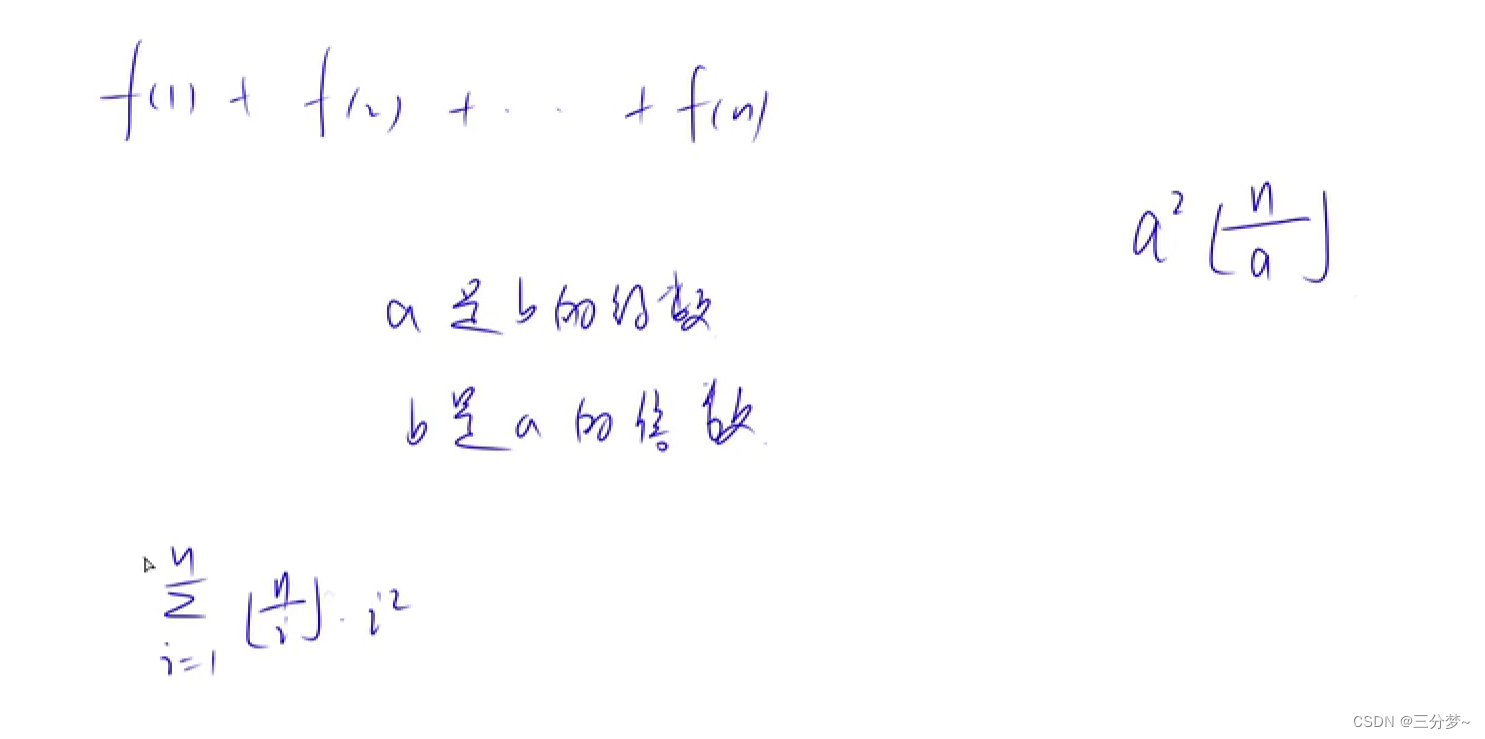 f(1) + f(2) + · · + f(n)
a² ⌊n/a⌋
a 是 b 的约数
b 是 a 的倍数
∑_{i=1}^{n} ⌊n/i⌋ · i²
CSDN @三分梦~